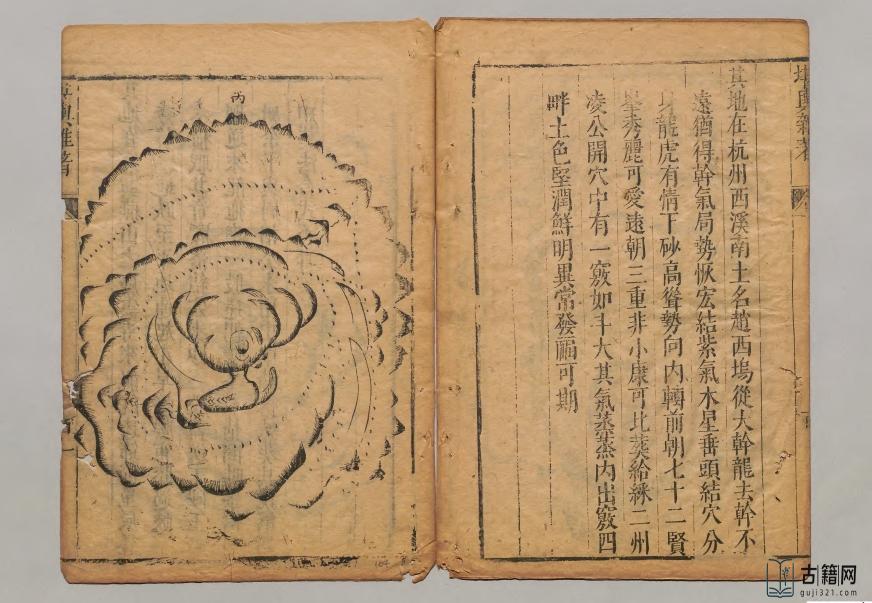 堪輿雜著
其地在杭州西溪南土名趙西塢從大幹龍去幹不
遠猶得幹氣局勢恢宏結紫氣木星垂頭結穴分
龍虎有情下砂高聳勢向內轉前朝七十二賢
峯秀麗可愛遠朝三重非小康可比葵給綵二州
凌公開穴中有一竅如斗大其氣蒸蒸內出竅四
畔土色堅潤鮮明異常發福可期
丙
堪輿雜著
古籍网
guji321.com